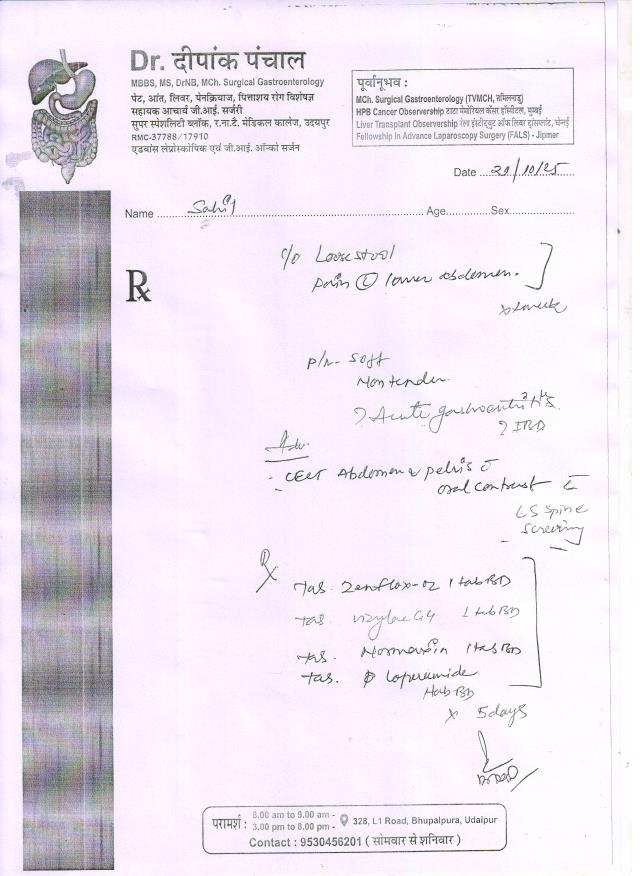 Dr. दीपांक पंचाल
MBBS, MS, DrNB, MCh. Surgical Gastroenterology
पेट, आंत, लिवर, पेनक्रियाज, पित्ताशय रोग विशेषज्ञ
सहायक आचार्य जी.आई. सर्जरी
सुपर स्पेशलिटी ब्लॉक, र.ना.टै. मेडिकल कालेज, उदयपुर
RMC-37788/17910
एडवांस लेप्रोस्कोपिक एवं जी.आई. ऑन्को सर्जन
पूर्वानूभव :
MCh. Surgical Gastroenterology (TVMCH, तमिलनाडु)
HPB Cancer Observership टाटा मेमोरियल कैंसर हॉस्पीटल, मुम्बई
Liver Transplant Observership रेला इंस्टीट्यूट ऑफ लिवर ट्रांसप्लांट, चेन्नई
Fellowship in Advance Laparoscopy Surgery (FALS) - Jipmer
Date 29/10/25
Name Sahil Age Sex
Rx
c/o Loose stool
pain lower abdomen.
x 1 week
P/A- Soft
Non tender.
? Acute gastroenteritis
? IBD
Adv.
- CECT Abdomen & pelvis c̄
oral contrast c̄
LS spine
screening
Rx
Tab. Zenflox-OZ 1 tab BD
Tab. Vizylac G4 1 tab BD
Tab. 1 tab BD
Tab. Loperamide
1 tab BD
x 5 days
परामर्श : 8.00 am to 9.00 am -
3.00 pm to 8.00 pm - 328, L1 Road, Bhupalpura, Udaipur
Contact : 9530456201 ( सोमवार से शनिवार )